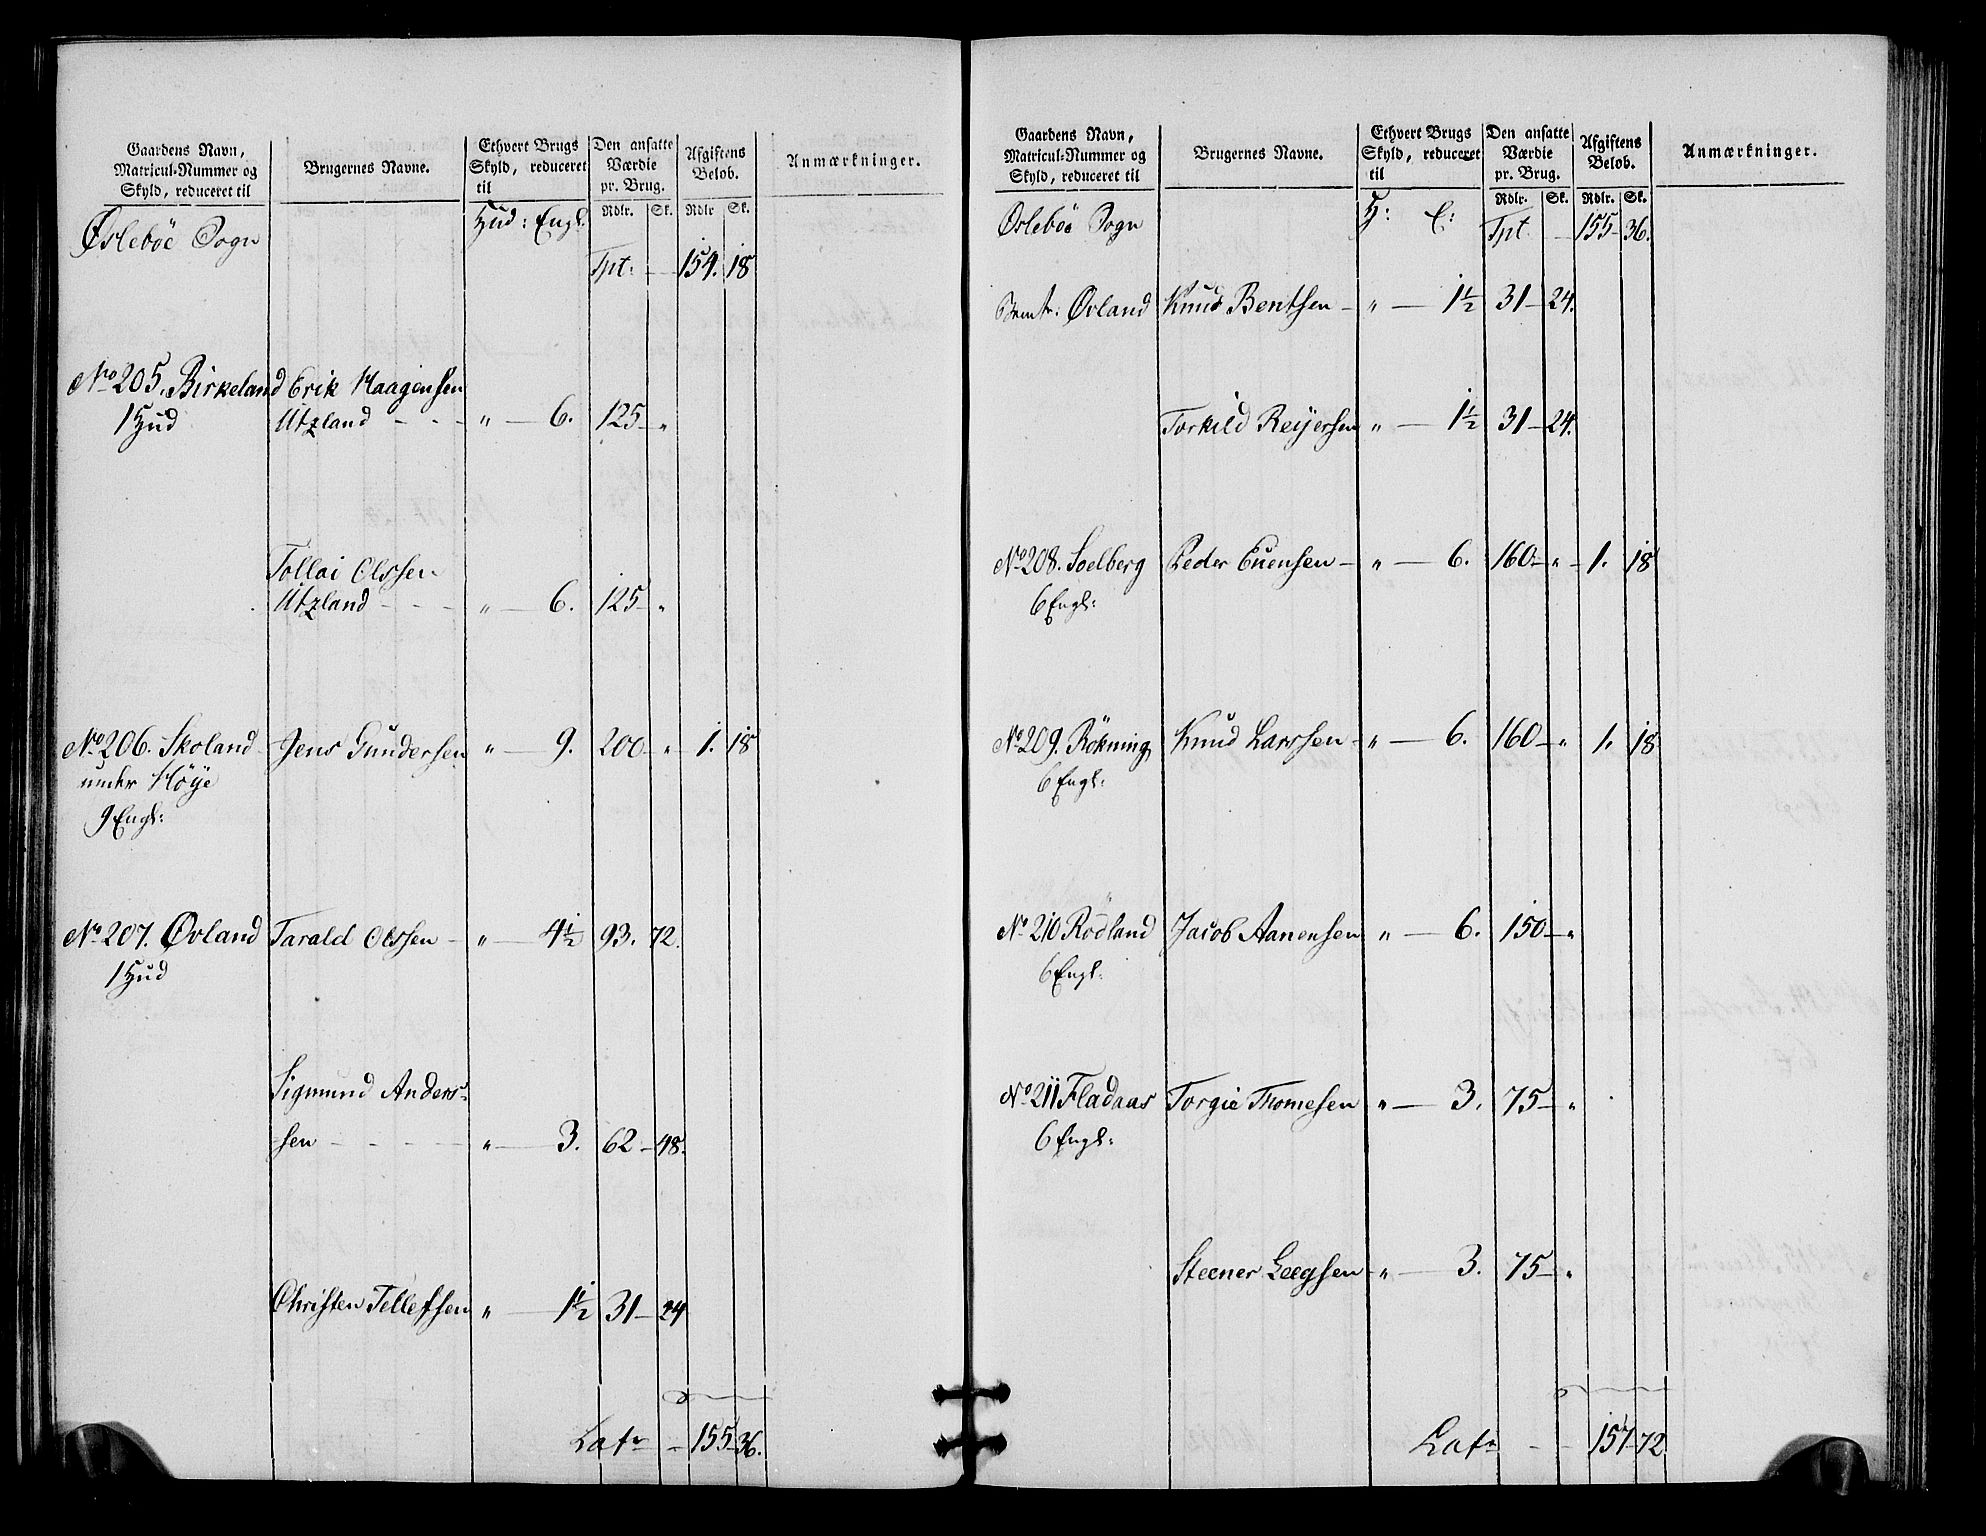 Gaardens Navn, Matricul-Nummer og Skyld, reduceret til | Brugernes Navne. | Ethvert Brugs Skyld, reduceret til | Den ansatte Værdie pr. Brug. | Afgiftens Beløb. | Anmærkninger.
Rdlr. Sk. Rdlr Sk.
Øslebøe Sogn Hud: Engl.
Tpt: — 154. 18
No 205. Birkeland Erik Haagensen
1 Hud Utzland - - - " — 6. 125 — "
Tollai Olssen
Utzland - - - " — 6. 125 — "
No 206. Skoland Jens Gundersen " — 9. 200 — " 1. 18
under Höye
9 Engl:
No 207. Øvland Tarald Olssen — " — 4½ 93. 72.
1 Hud
Sigmund Anders-
sen — — — " — 3. 62 — 48.
Christen Tellefsen " — 1½ 31 — 24
Latr — 155 — 36.
Gaardens Navn, Matricul-Nummer og Skyld, reduceret til | Brugernes Navne. | Ethvert Brugs Skyld, reduceret til | Den ansatte Værdie pr. Brug. | Afgiftens Beløb. | Anmærkninger.
Rdlr. Sk. Rdlr. Sk.
Øslebøe Sogn H: E: Tpt. — 155 — 36.
Øvland Knud Bentsen — " — 1½ 31 — 24.
Torkild Reijersen " — 1½ 31 — 24.
No 208. Soelberg Peder Evensen — " — 6. 160 — " — 1. 18
6 Engl:
No 209. Rökning Knud Larssen — " — 6. 160 — " 1. 18
6 Engl:
No 210 Rödland Jacob Aanensen " — 6. 150 — "
6 Engl:
No 211 Fladaas Torgie Thomesen " — 3. 75 — "
6 Engl:
Steener Leegsen — " — 3. 75 — "
Latr - - 157 — 72